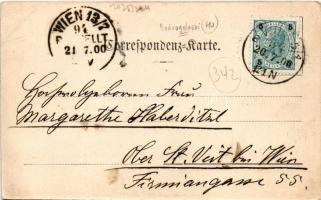 WIEN 13/7
21.7.00
V
Correspondenz-Karte.
342
5 5
Hochwolgeboren Frau
Margarethe Haberditzl
Ober St. Veit bei Wien
Firmiangasse 55.